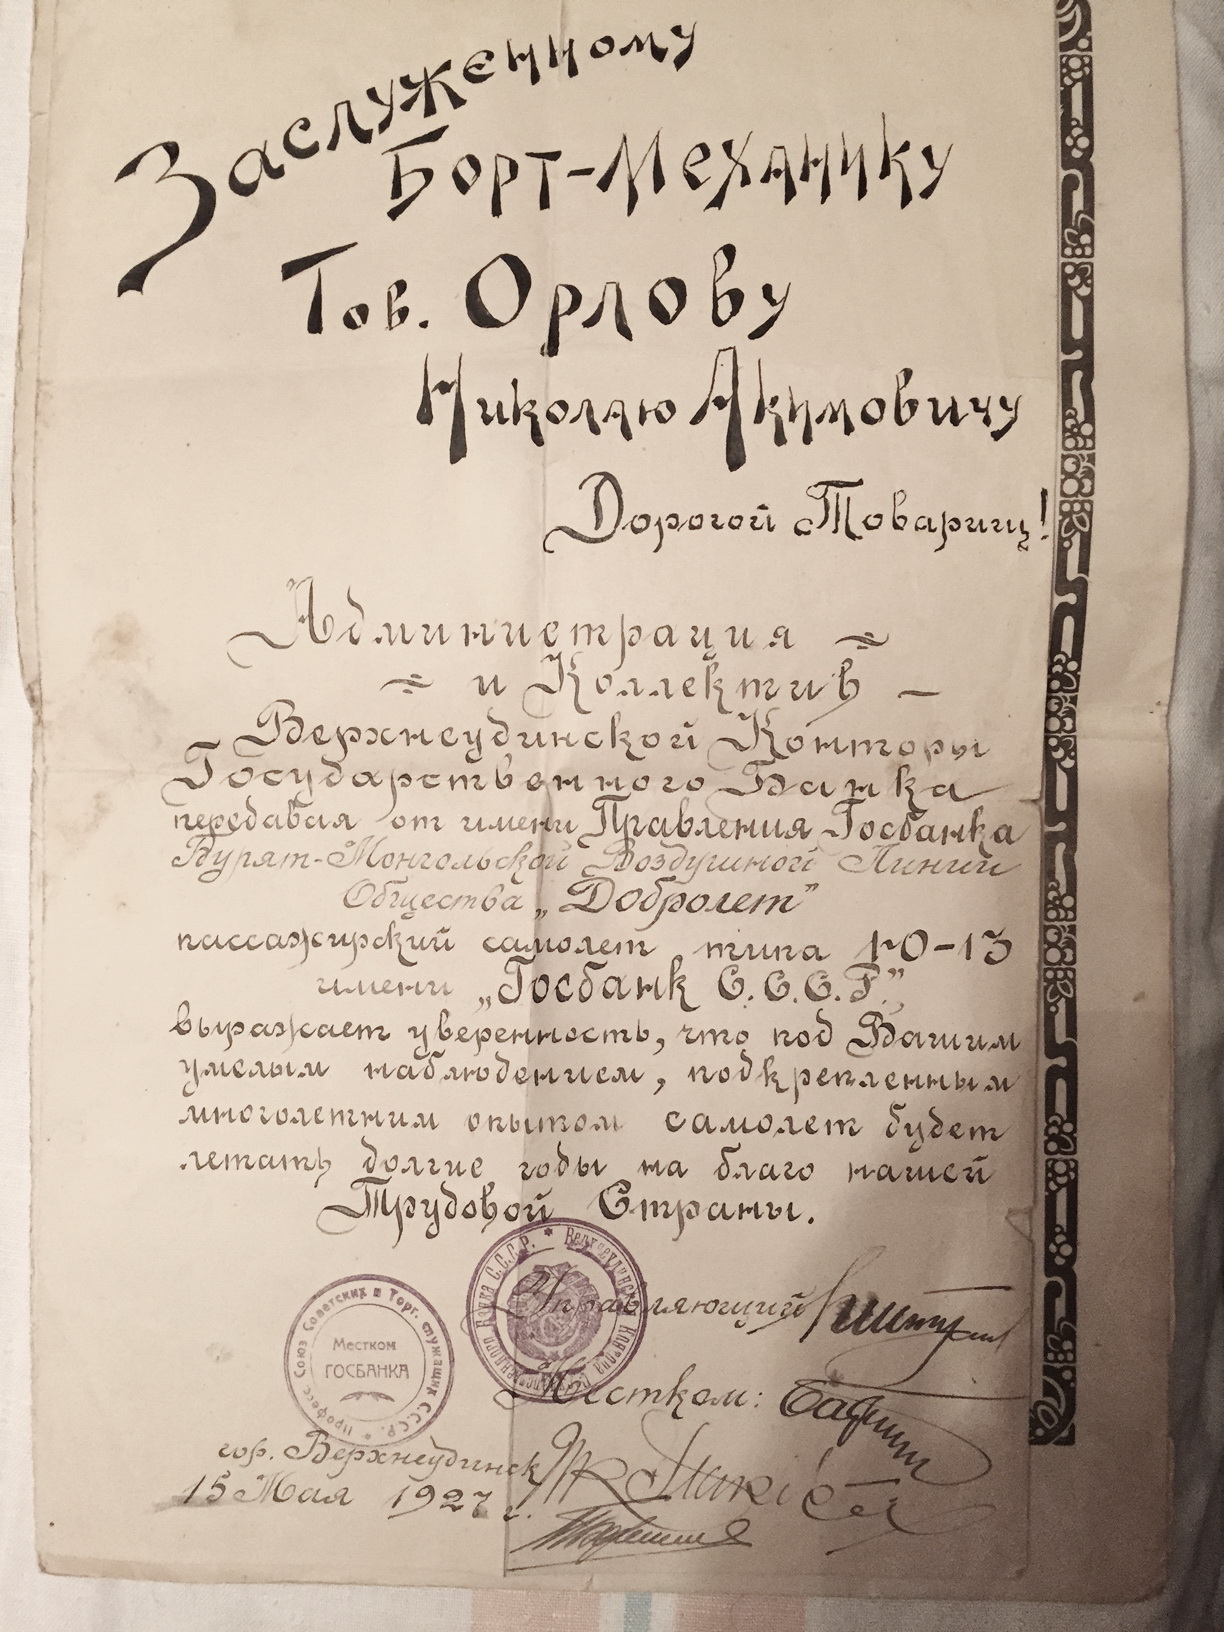 Заслуженному
Борт-Механику
Тов. Орлову
Николаю Акимовичу
Дорогой Товарищ!
Администрация
и Коллектив —
Верхнеудинской Конторы
Государственного Банка
передавая от имени Правления Госбанка
Бурят-Монгольской Воздушной Линии
Общества „Добролет"
пассажирский самолет типа Ю-13
имени „Госбанк С.С.С.Р.",
выражает уверенность, что под Вашим
умелым наблюдением, подкрепленным
многолетним опытом самолет будет
летать долгие годы на благо нашей
Трудовой Страны.
Управляющий
Местком:
гор. Верхнеудинск
15 Мая 1927 г.
Професс. Союз Советских и Торг. служащих С.С.С.Р.
Местком
ГОСБАНКА
Верхнеудинск. Контора Государственного Банка С.С.С.Р.